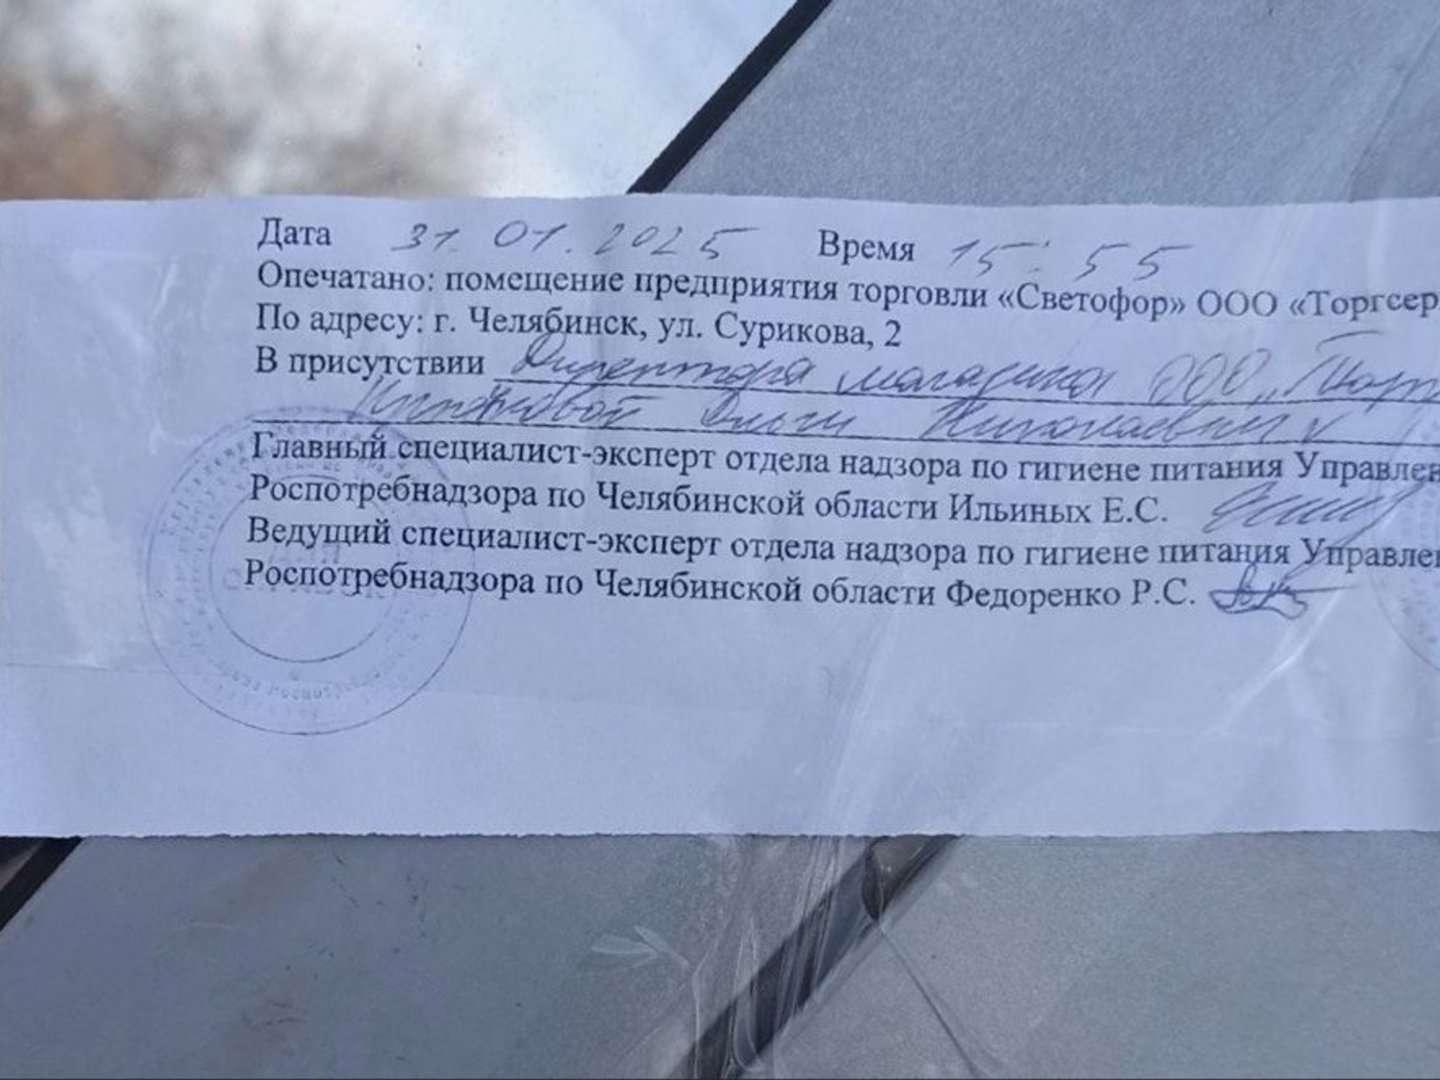 Дата 31.01.2025 Время 15:55
Опечатано: помещение предприятия торговли «Светофор» ООО «Торгсер
По адресу: г. Челябинск, ул. Сурикова, 2
В присутствии Директора магазина ООО „Торг
Ольги Николаевны
Главный специалист-эксперт отдела надзора по гигиене питания Управлен
Роспотребнадзора по Челябинской области Ильиных Е.С.
Ведущий специалист-эксперт отдела надзора по гигиене питания Управлен
Роспотребнадзора по Челябинской области Федоренко Р.С.